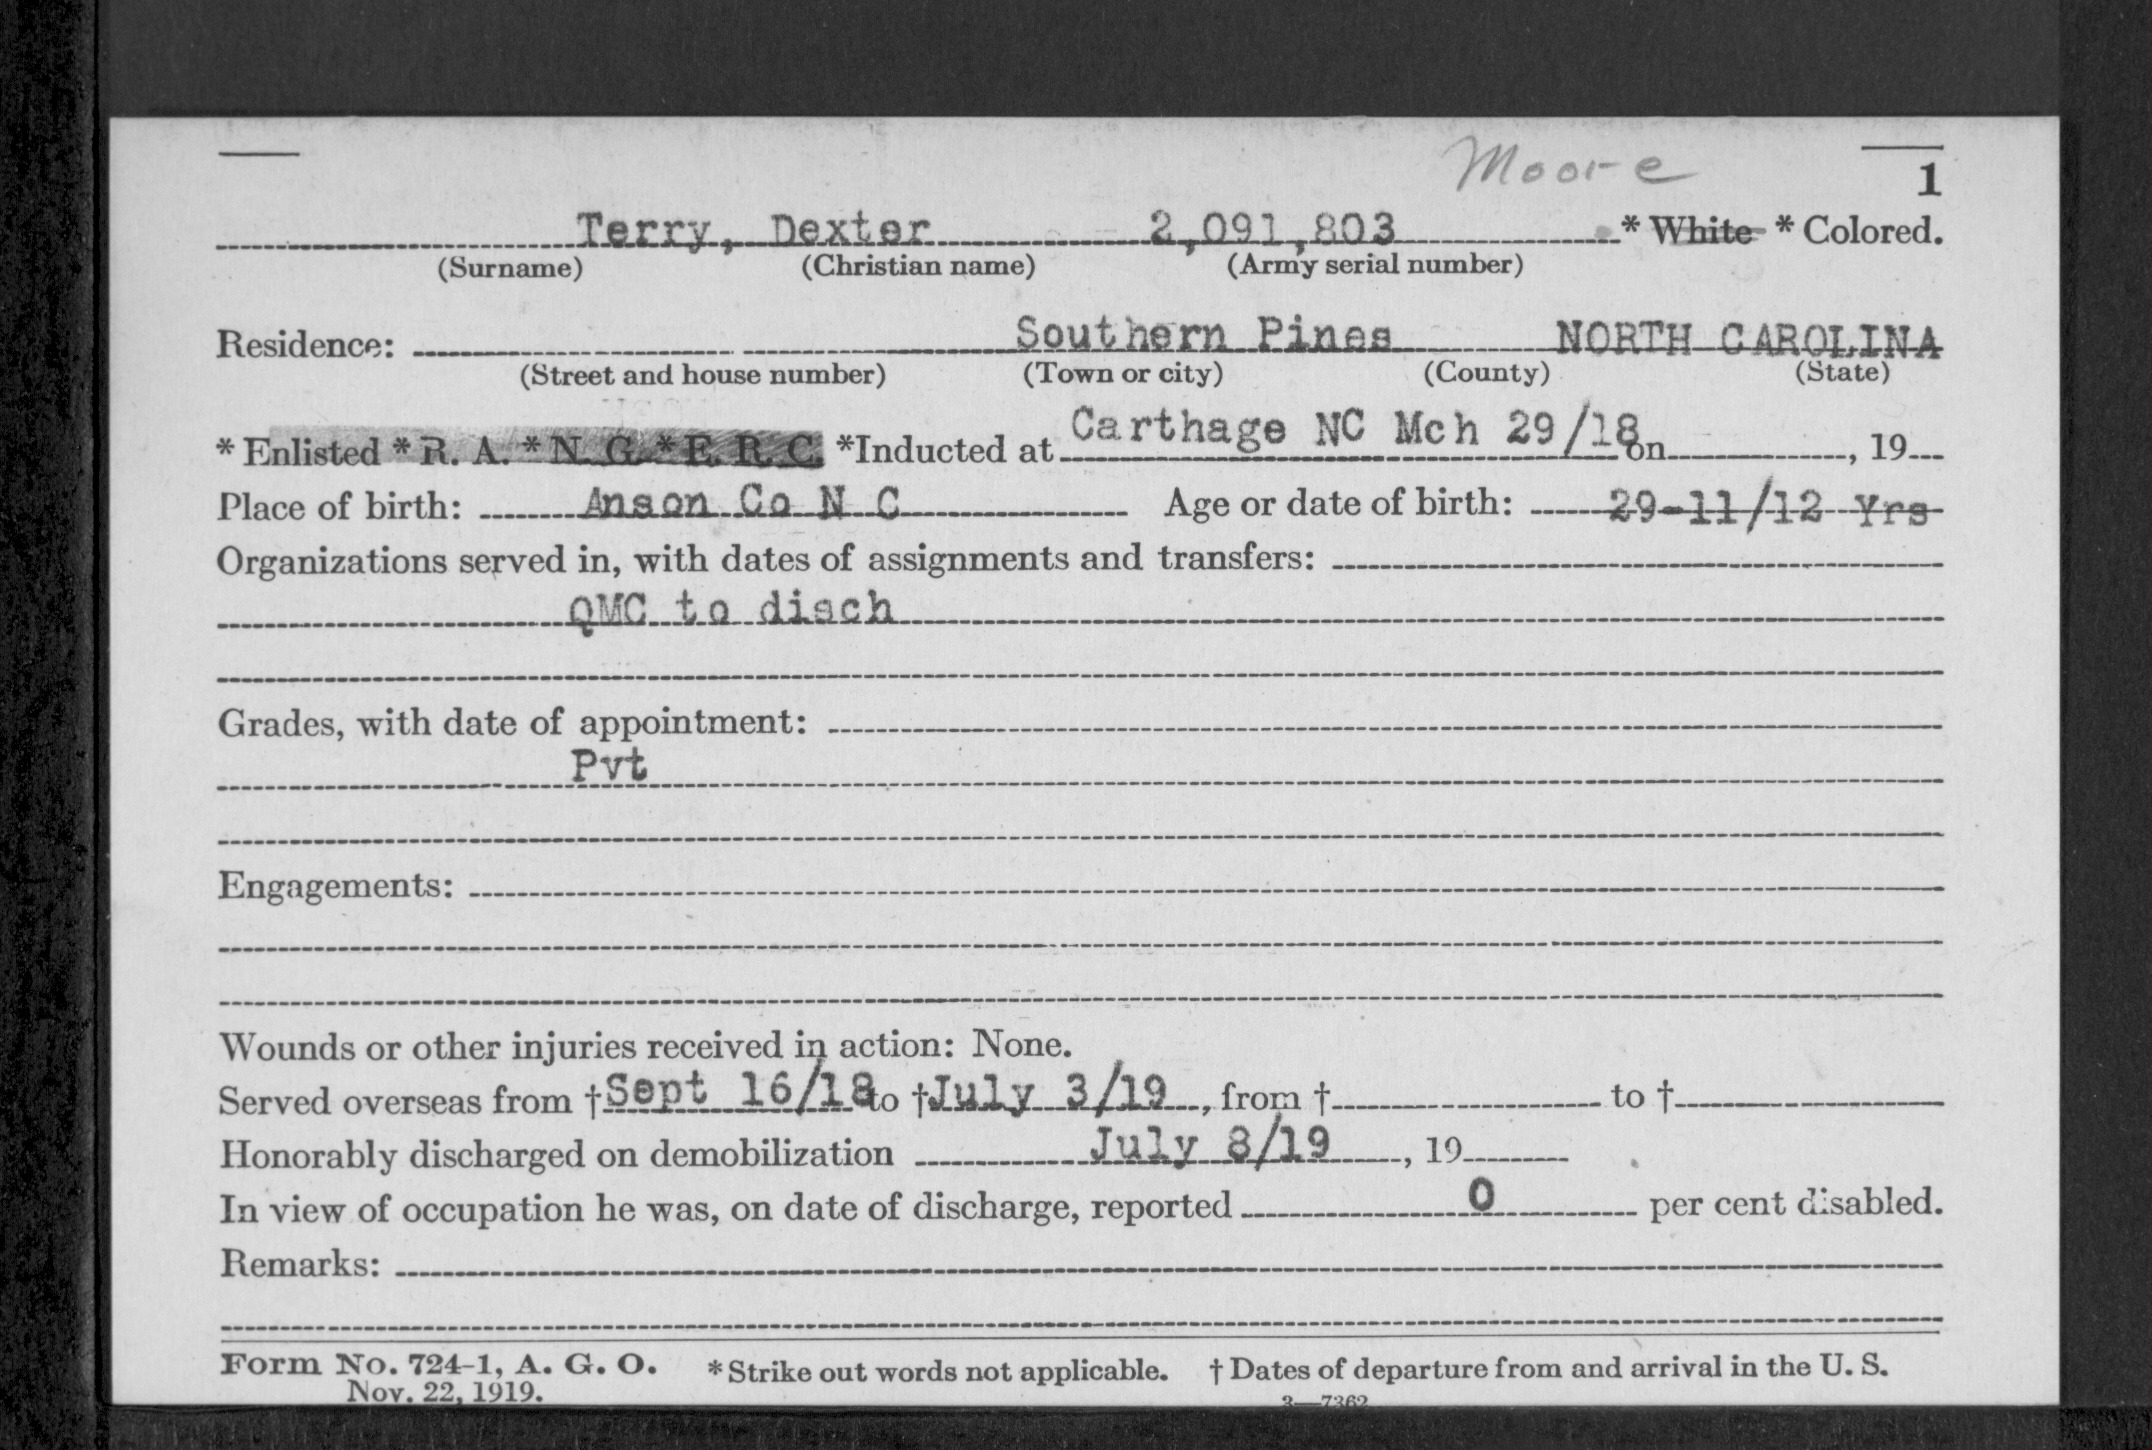 Moore
1
Terry, Dexter 2,091,803 * White * Colored.
(Surname) (Christian name) (Army serial number)
Southern Pines NORTH CAROLINA
Residence:
(Street and house number) (Town or city) (County) (State)
Carthage NC Mch 29/18
* Enlisted * R. A. * N. G. * E. R. C. *Inducted at on , 19
Place of birth: Anson Co N C Age or date of birth: 29-11/12 Yrs
Organizations served in, with dates of assignments and transfers:
QMC to disch
Grades, with date of appointment:
Pvt
Engagements:
Wounds or other injuries received in action: None.
Served overseas from † Sept 16/18 to † July 3/19, from † to †
Honorably discharged on demobilization July 8/19, 19
In view of occupation he was, on date of discharge, reported 0 per cent disabled.
Remarks:
Form No. 724-1, A. G. O. * Strike out words not applicable. † Dates of departure from and arrival in the U. S.
Nov. 22, 1919.
3—7362